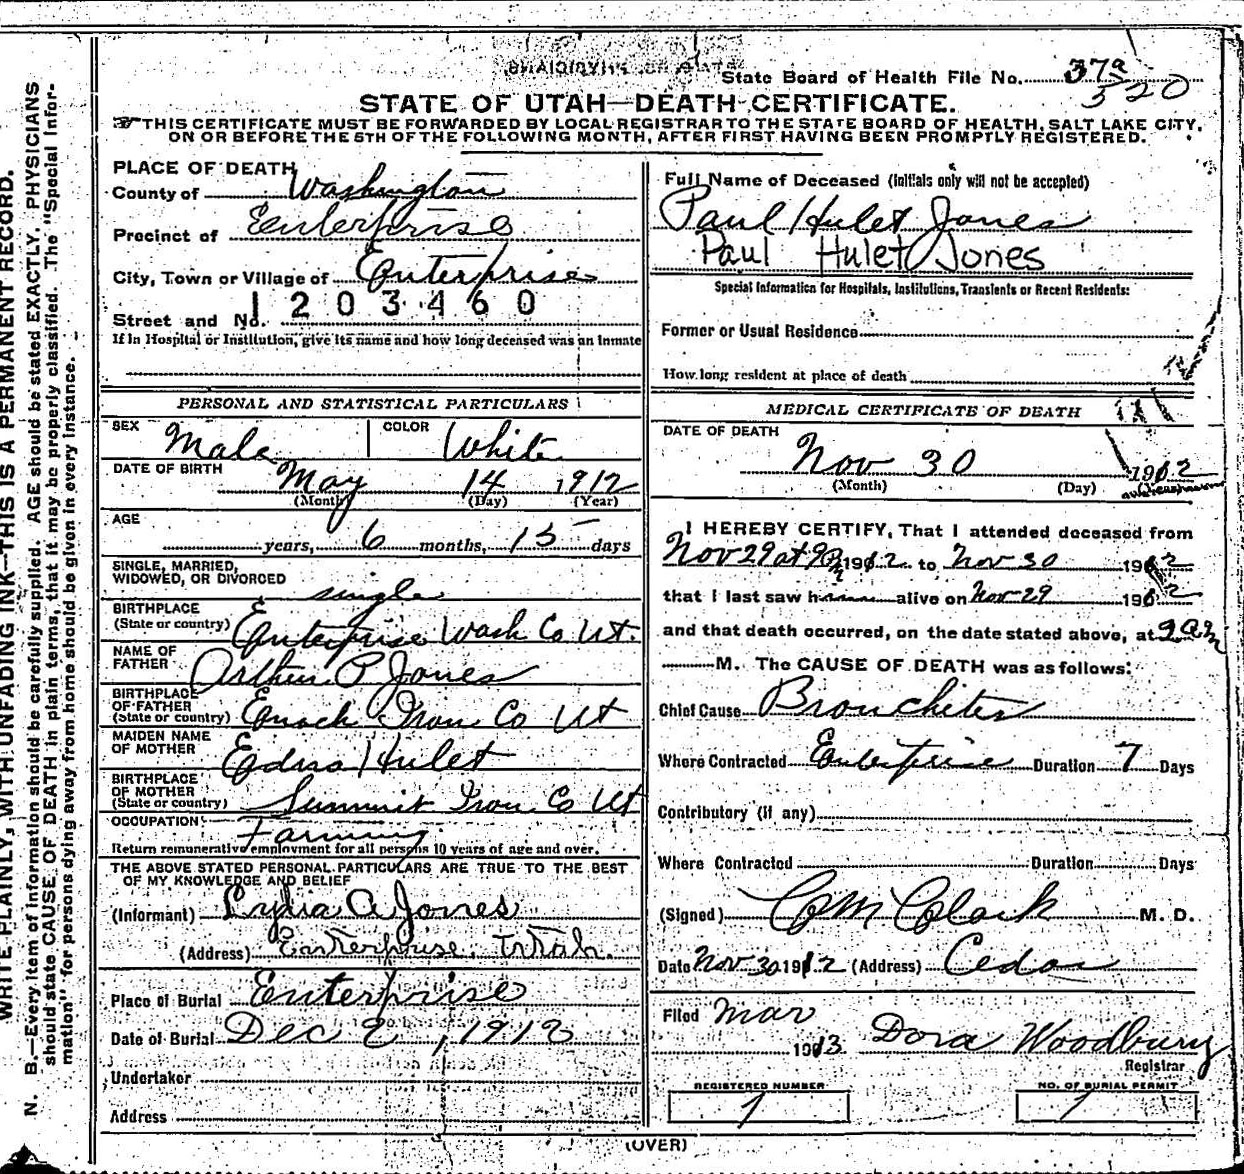 State Board of Health File No. 37a
520
STATE OF UTAH—DEATH CERTIFICATE.
THIS CERTIFICATE MUST BE FORWARDED BY LOCAL REGISTRAR TO THE STATE BOARD OF HEALTH, SALT LAKE CITY,
ON OR BEFORE THE 5TH OF THE FOLLOWING MONTH, AFTER FIRST HAVING BEEN PROMPTLY REGISTERED.
WRITE PLAINLY, WITH UNFADING INK—THIS IS A PERMANENT RECORD.
N. B.—Every item of information should be carefully supplied. AGE should be stated EXACTLY. PHYSICIANS
should state CAUSE OF DEATH in plain terms, that it may be properly classified. The "Special Infor-
mation" for persons dying away from home should be given in every instance.
PLACE OF DEATH
County of Washington
Precinct of Enterprise
City, Town or Village of Enterprise
1203460
Street and No.
If in Hospital or Institution, give its name and how long deceased was an inmate
PERSONAL AND STATISTICAL PARTICULARS
SEX Male COLOR White
DATE OF BIRTH May 14 1912
(Month) (Day) (Year)
AGE
years, 6 months, 15 days
SINGLE, MARRIED,
WIDOWED, OR DIVORCED single
BIRTHPLACE
(State or country) Enterprise Wash Co Ut.
NAME OF
FATHER Arthur P Jones
BIRTHPLACE
OF FATHER
(State or country) Enoch Iron Co Ut
MAIDEN NAME
OF MOTHER Edna Hulet
BIRTHPLACE
OF MOTHER
(State or country) Summit Iron Co Ut
OCCUPATION Farming
Return remunerative employment for all persons 10 years of age and over.
THE ABOVE STATED PERSONAL PARTICULARS ARE TRUE TO THE BEST
OF MY KNOWLEDGE AND BELIEF
(Informant) Lydia A Jones
(Address) Enterprise, Utah.
Place of Burial Enterprise
Date of Burial Dec 2, 1912
Undertaker
Address
Full Name of Deceased (Initials only will not be accepted)
Paul Hulet Jones
Paul Hulet Jones
Special Information for Hospitals, Institutions, Transients or Recent Residents:
Former or Usual Residence
How long resident at place of death
MEDICAL CERTIFICATE OF DEATH
DATE OF DEATH
Nov 30 1912
(Month) (Day) (Year)
I HEREBY CERTIFY, That I attended deceased from
Nov 29 at 9 1912 to Nov 30 1912
that I last saw h alive on Nov 29 1912
and that death occurred, on the date stated above, at 9 am
M. The CAUSE OF DEATH was as follows:
Chief Cause Bronchites
Where Contracted Enterprise Duration 7 Days
Contributory (if any)
Where Contracted Duration Days
(Signed) Clark M. D.
Date Nov 30 1912 (Address) Cedar
Filed Mar
1913 Dora Woodbury
Registrar
REGISTERED NUMBER NO. OF BURIAL PERMIT
1 1
(OVER)